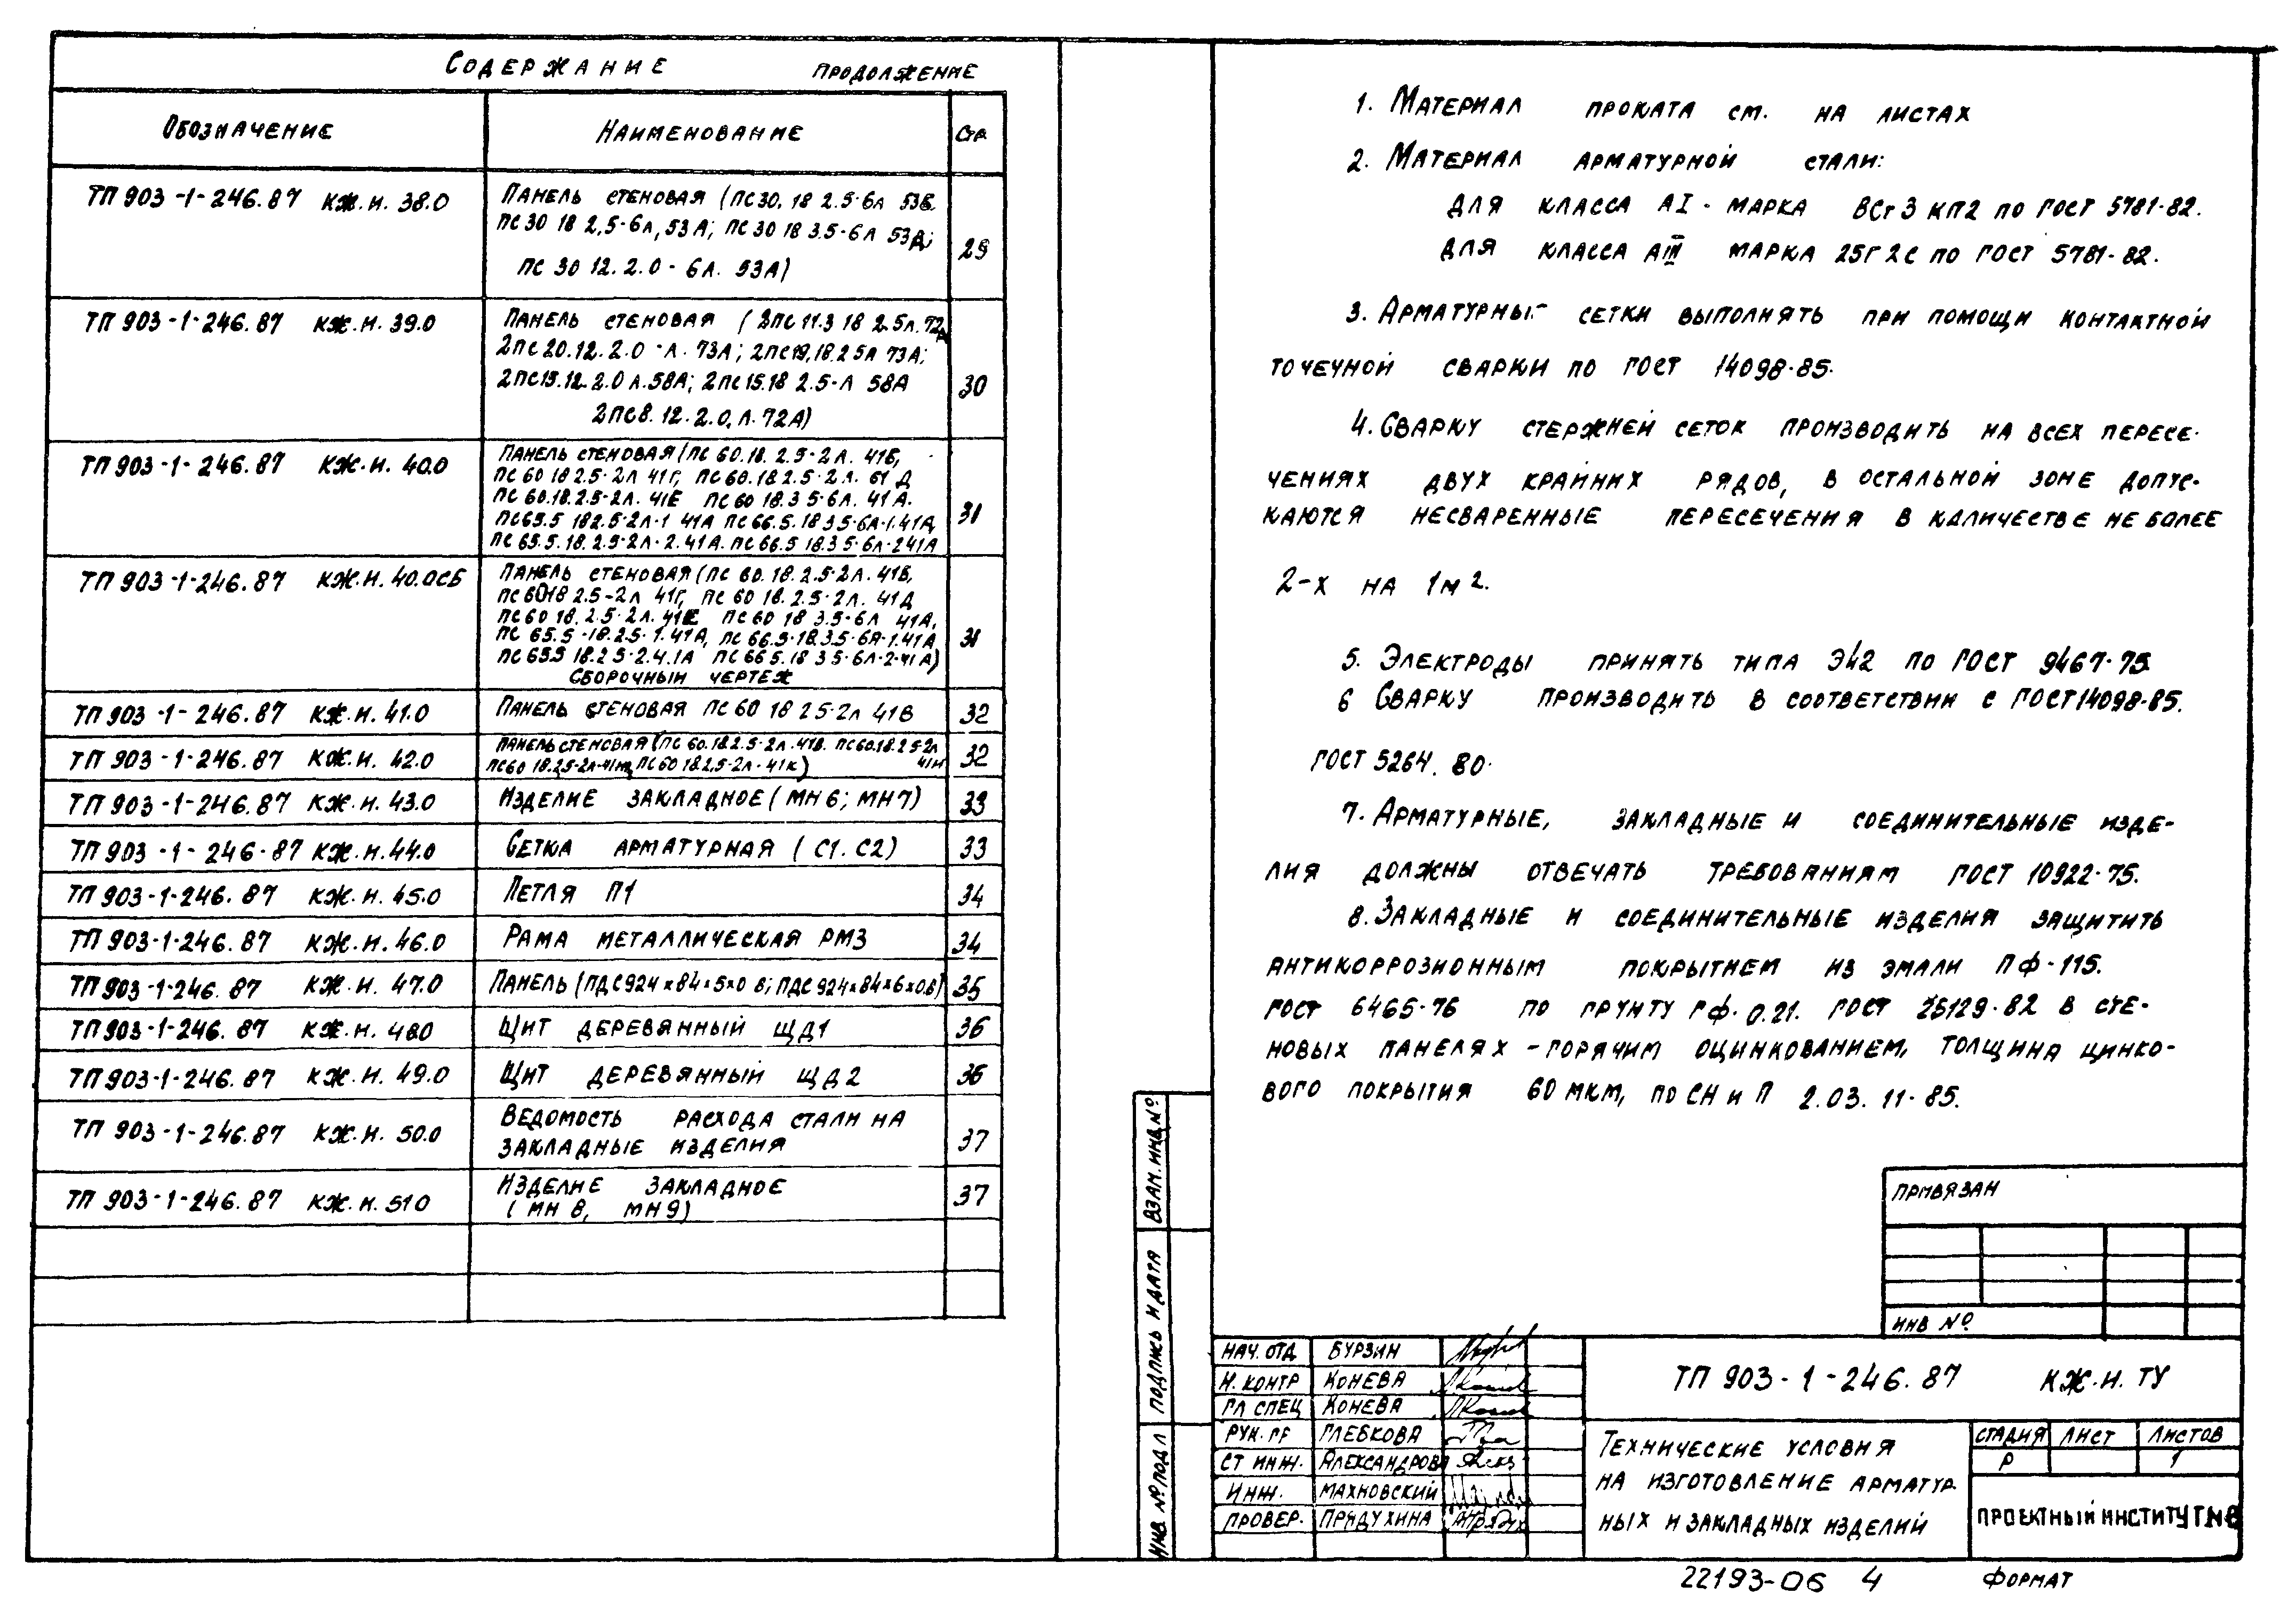 Содержание продолжение
Обозначение Наименование Стр
ТП 903-1-246.87 КЖ.И. 38.0
Панель стеновая (ПС30. 18 2.5-6л 53Б.
ПС30 18 2,5-6л, 53А; ПС30 18 3.5-6л 53Д;
ПС 30 12. 2.0 - 6л. 53А)
29
ТП 903-1-246.87 КЖ.И. 39.0
Панель стеновая (2ПС 11.3 18 2.5л. 72А
2ПС 20.12. 2.0 -л. 73А; 2ПС19,18.2 5л 73А;
2ПС15.12. 2.0 л.58А; 2ПС15.18 2.5-л 58А
2ПС8. 12. 2.0. л. 72А)
30
ТП 903-1-246.87 КЖ.И. 40.0
Панель стеновая (ПС 60.18. 2.5-2л. 41Б,
ПС 60 18 2.5-2л 41Г, ПС 60.18 2.5-2л. 61 Д
ПС 60.18. 2.5-2л. 41Е ПС 60 18.3 5-6л. 41 А.
ПС65.5 18 2.5-2л-1 41А ПС 66.5. 18 3 5-6л-1.41А,
ПС 65.5. 18. 2.5-2л-2.41А. ПС 66.5 18.3 5-6л-2 41А
31
ТП 903-1-246.87 КЖ.И. 40.0СБ
Панель стеновая (ПС 60. 18. 2.5-2л. 41Б,
ПС 60 18 2.5-2л 41Г, ПС 60 18. 2.5-2л. 41Д
ПС 60 18. 2.5-2л. 41Е ПС 60 18 3.5-6л 41А,
ПС 65.5 -18.2.5-1.41А, ПС 66.5-18.3.5-6л-1.41А
ПС 65.5 18.2 5-2.4.1А ПС 66 5. 18 3 5-6л-2-41 А)
Сборочный чертеж
31
ТП 903-1-246.87 КЖ.И. 41.0 Панель стеновая ПС 60 18 2 5-2л 41В 32
ТП 903-1-246.87 КЖ.И. 42.0
Панель стеновая (ПС 60.18.2.5-2л. 41В. ПС60.18.2 5-2л
ПС60 18.2.5-2л-41Ж, ПС 60 18.2.5-2л-41К) 41И
32
ТП 903-1-246.87 КЖ.И. 43.0 Изделие закладное (МН6; МН7) 33
ТП 903-1-246.87 КЖ.И. 44.0 Сетка арматурная (С1. С2) 33
ТП 903-1-246.87 КЖ.И. 45.0 Петля П1 34
ТП 903-1-246.87 КЖ.И. 46.0 Рама металлическая РМ3 34
ТП 903-1-246.87 КЖ.И. 47.0 Панель (ПДС924×84×5×0 8; ПДС 924×84×6×0.8) 35
ТП 903-1-246.87 КЖ.И. 48.0 Щит деревянный ЩД1 36
ТП 903-1-246.87 КЖ.И. 49.0 Щит деревянный ЩД2 36
ТП 903-1-246.87 КЖ.И. 50.0
Ведомость расхода стали на
закладные изделия
37
ТП 903-1-246.87 КЖ.И. 51 0
Изделие закладное
(МН 8, МН 9)
37
1. Материал проката см. на листах
2. Материал арматурной стали:
для класса АI - марка ВСт3 кп2 по ГОСТ 5781-82.
для класса АIII марка 25Г2С по ГОСТ 5781-82.
3. Арматурны- сетки выполнять при помощи контактной
точечной сварки по ГОСТ 14098-85.
4. Сварку стержней сеток производить на всех пересе-
чениях двух крайних рядов, в остальной зоне допус-
каются несваренные пересечения в количестве не более
2-х на 1м2.
5. Электроды принять типа Э42 по ГОСТ 9467-75
6 Сварку производить в соответствии с ГОСТ14098-85.
ГОСТ 5264. 80.
7. Арматурные, закладные и соединительные изде-
лия должны отвечать требованиям ГОСТ 10922-75.
8. Закладные и соединительные изделия защитить
антикоррозионным покрытием из эмали ПФ-115.
ГОСТ 6465-76 по грунту ГФ-0.21. ГОСТ 25129-82 в сте-
новых панелях - горячим оцинкованием, толщина цинко-
вого покрытия 60 мкм, по СН и П 2.03. 11-85.
Взам. инв. №
Подпись и дата
Инв № подл
Привязан
Инв №
Нач. отд Бурзин
Н. контр Конева
Гл спец Конева
Рук. гр Глебкова
Ст инж. Александрова
Инж. Махновский
Провер. Придухина
ТП 903-1-246.87 КЖ.И. ТУ
Технические условия
на изготовление арматур
ных и закладных изделий
стадия лист листов
Р 1
Проектный институт №
22193-06 4 Формат